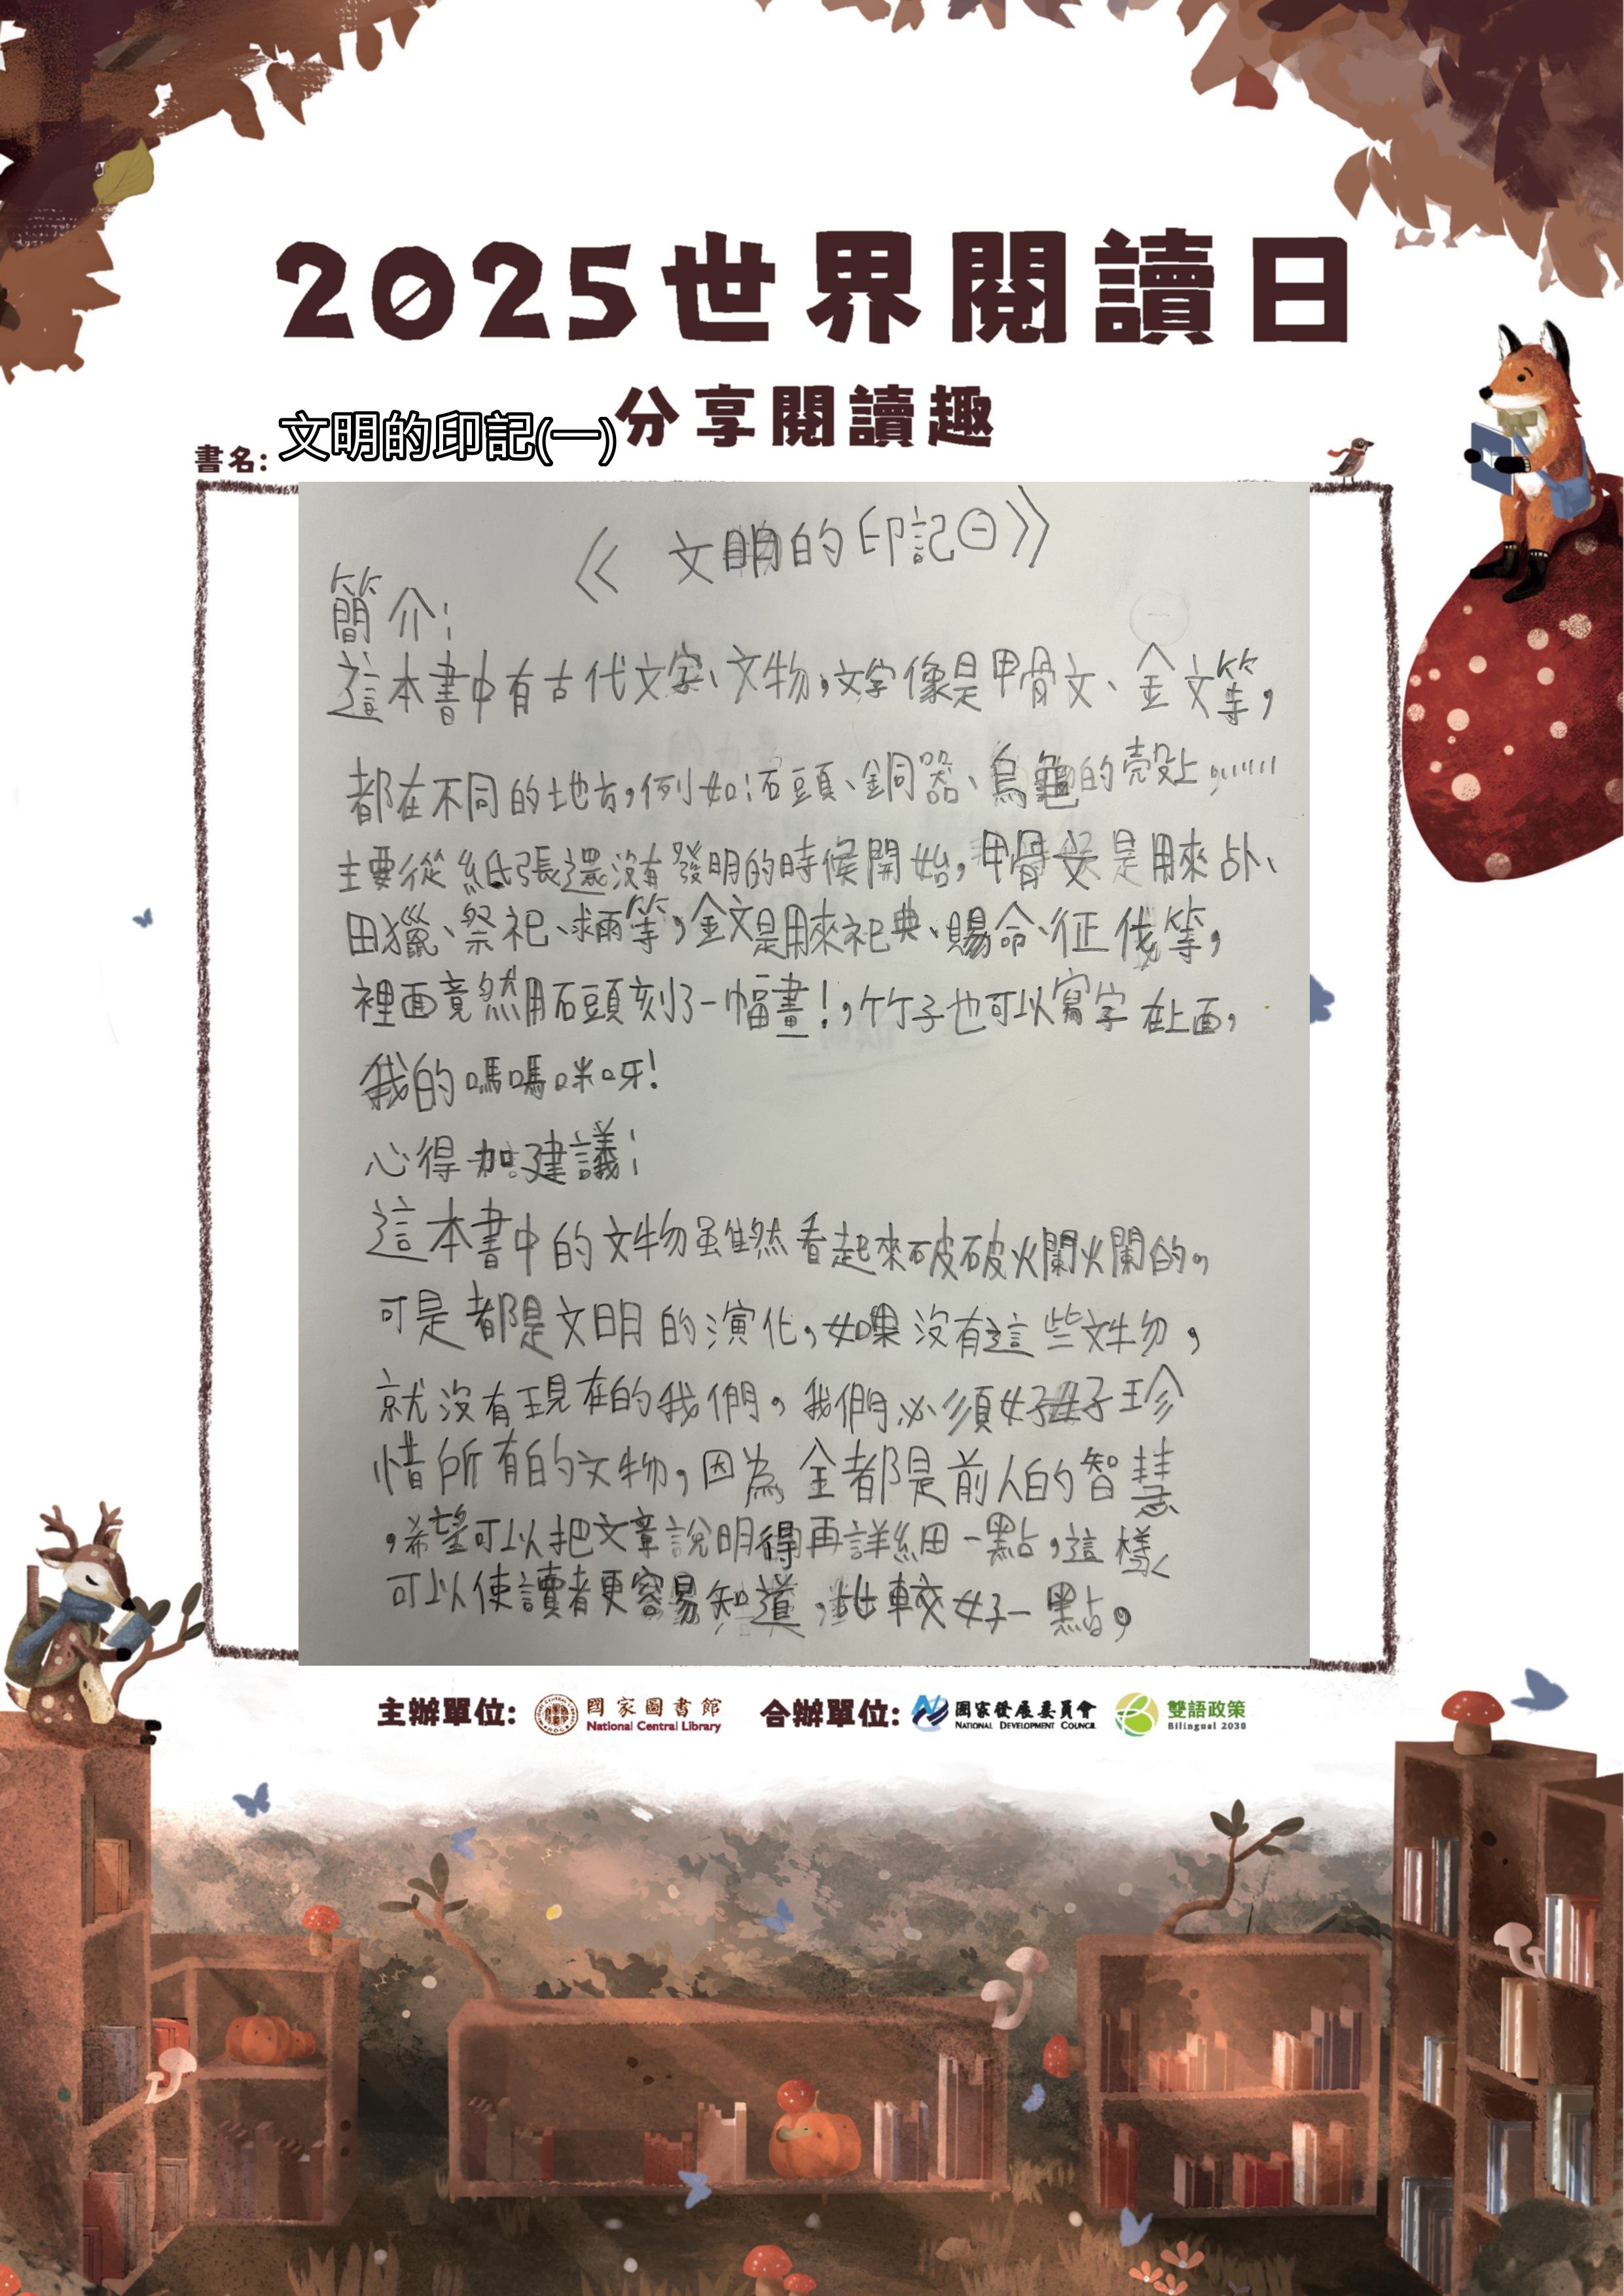 2025世界閱讀日
分享閱讀趣
書名: 文明的印記(一)
《 文明的印記㊀》
簡介:
這本書中有古代文字、文物,文字像是甲骨文、金文等,
都在不同的地方,例如:石頭、銅器、烏龜的殼上,......
主要從紙張還沒有發明的時候開始,甲骨文是用來占卜、
田獵、祭祀、求雨等,金文是用來祀典、賜命、征伐等,
裡面竟然用石頭刻了一幅畫!,竹子也可以寫字在上面,
我的嗎嗎咪呀!
心得加建議:
這本書中的文物雖然看起來破破爛爛的,
可是都是文明的演化,如果沒有這些文物,
就沒有現在的我們。我們必須好好珍
惜所有的文物,因為全都是前人的智慧
,希望可以把文章說明得再詳細一點,這樣
可以使讀者更容易知道,比較好一點。
主辦單位: 國家圖書館 National Central Library 合辦單位: 國家發展委員會 NATIONAL DEVELOPMENT COUNCIL 雙語政策 Bilingual 2030